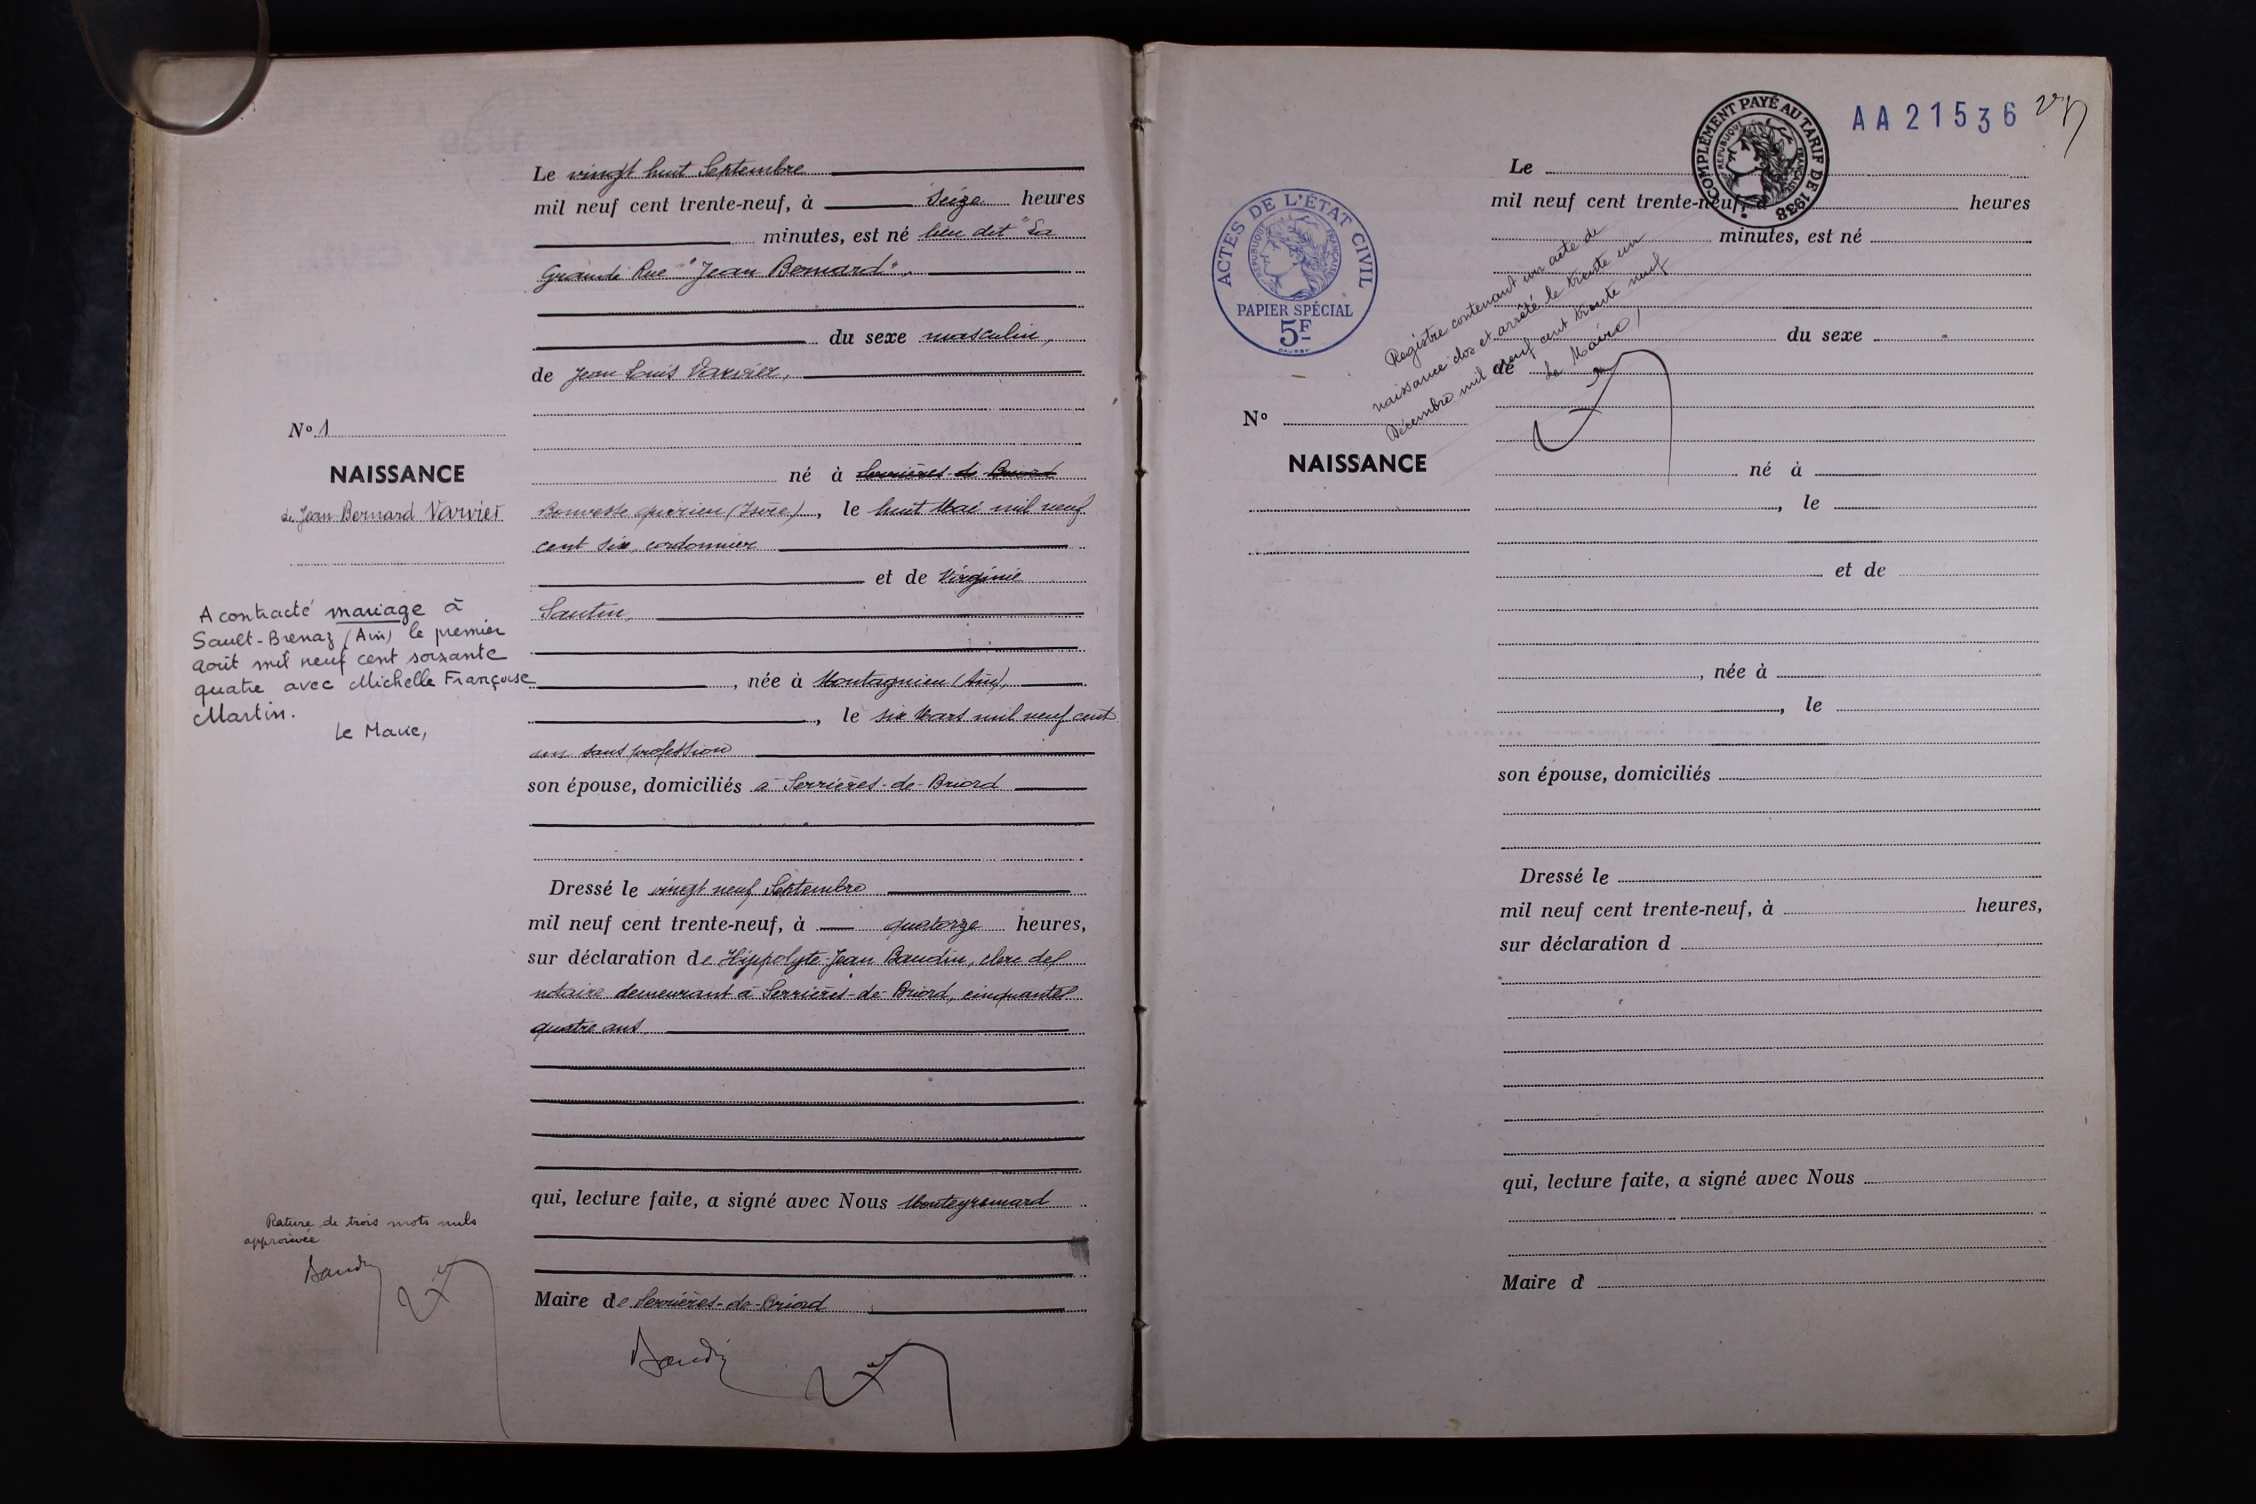 Le vingt huit Septembre
mil neuf cent trente-neuf, à seize heures
minutes, est né lieu dit "La
Grande Rue" "Jean Bernard".
du sexe masculin,
de Jean Louis Varvier,
N° 1
NAISSANCE
de Jean Bernard Varvier
né à Serrières-de-Briord
(Isère), le huit Mai mil neuf
cent six, cordonnier
et de Virginie
Santin,
A contracté mariage à
Sault-Brenaz (Ain) le premier
août mil neuf cent soixante
quatre avec Michelle Françoise
Martin.
Le Maire,
née à Montagnieu (Ain),
, le six Mars mil neuf cent
un sans profession
son épouse, domiciliés à Serrières-de-Briord
Dressé le vingt neuf Septembre
mil neuf cent trente-neuf, à quatorze heures,
sur déclaration de Hippolyte Jean Baudin, clerc de
notaire demeurant à Serrières-de-Briord, cinquante
quatre ans
qui, lecture faite, a signé avec Nous
Rature de trois mots nuls
approuvée
Baudin
Maire de Serrières-de-Briord
Baudin
COMPLÉMENT PAYÉ AU TARIF DE 1938
RÉPUBLIQUE FRANÇAISE
AA21536
ACTES DE L'ÉTAT CIVIL
RÉPUBLIQUE FRANÇAISE
PAPIER SPÉCIAL
5F
Le
mil neuf cent trente-neuf, à heures
minutes, est né
Registre contenant un acte de
naissance clos et arrêté le trente un
Décembre mil neuf cent trente neuf
Le Maire,
du sexe
de
N°
NAISSANCE
né à
, le
et de
, née à
, le
son épouse, domiciliés
Dressé le
mil neuf cent trente-neuf, à heures,
sur déclaration d
qui, lecture faite, a signé avec Nous
Maire d